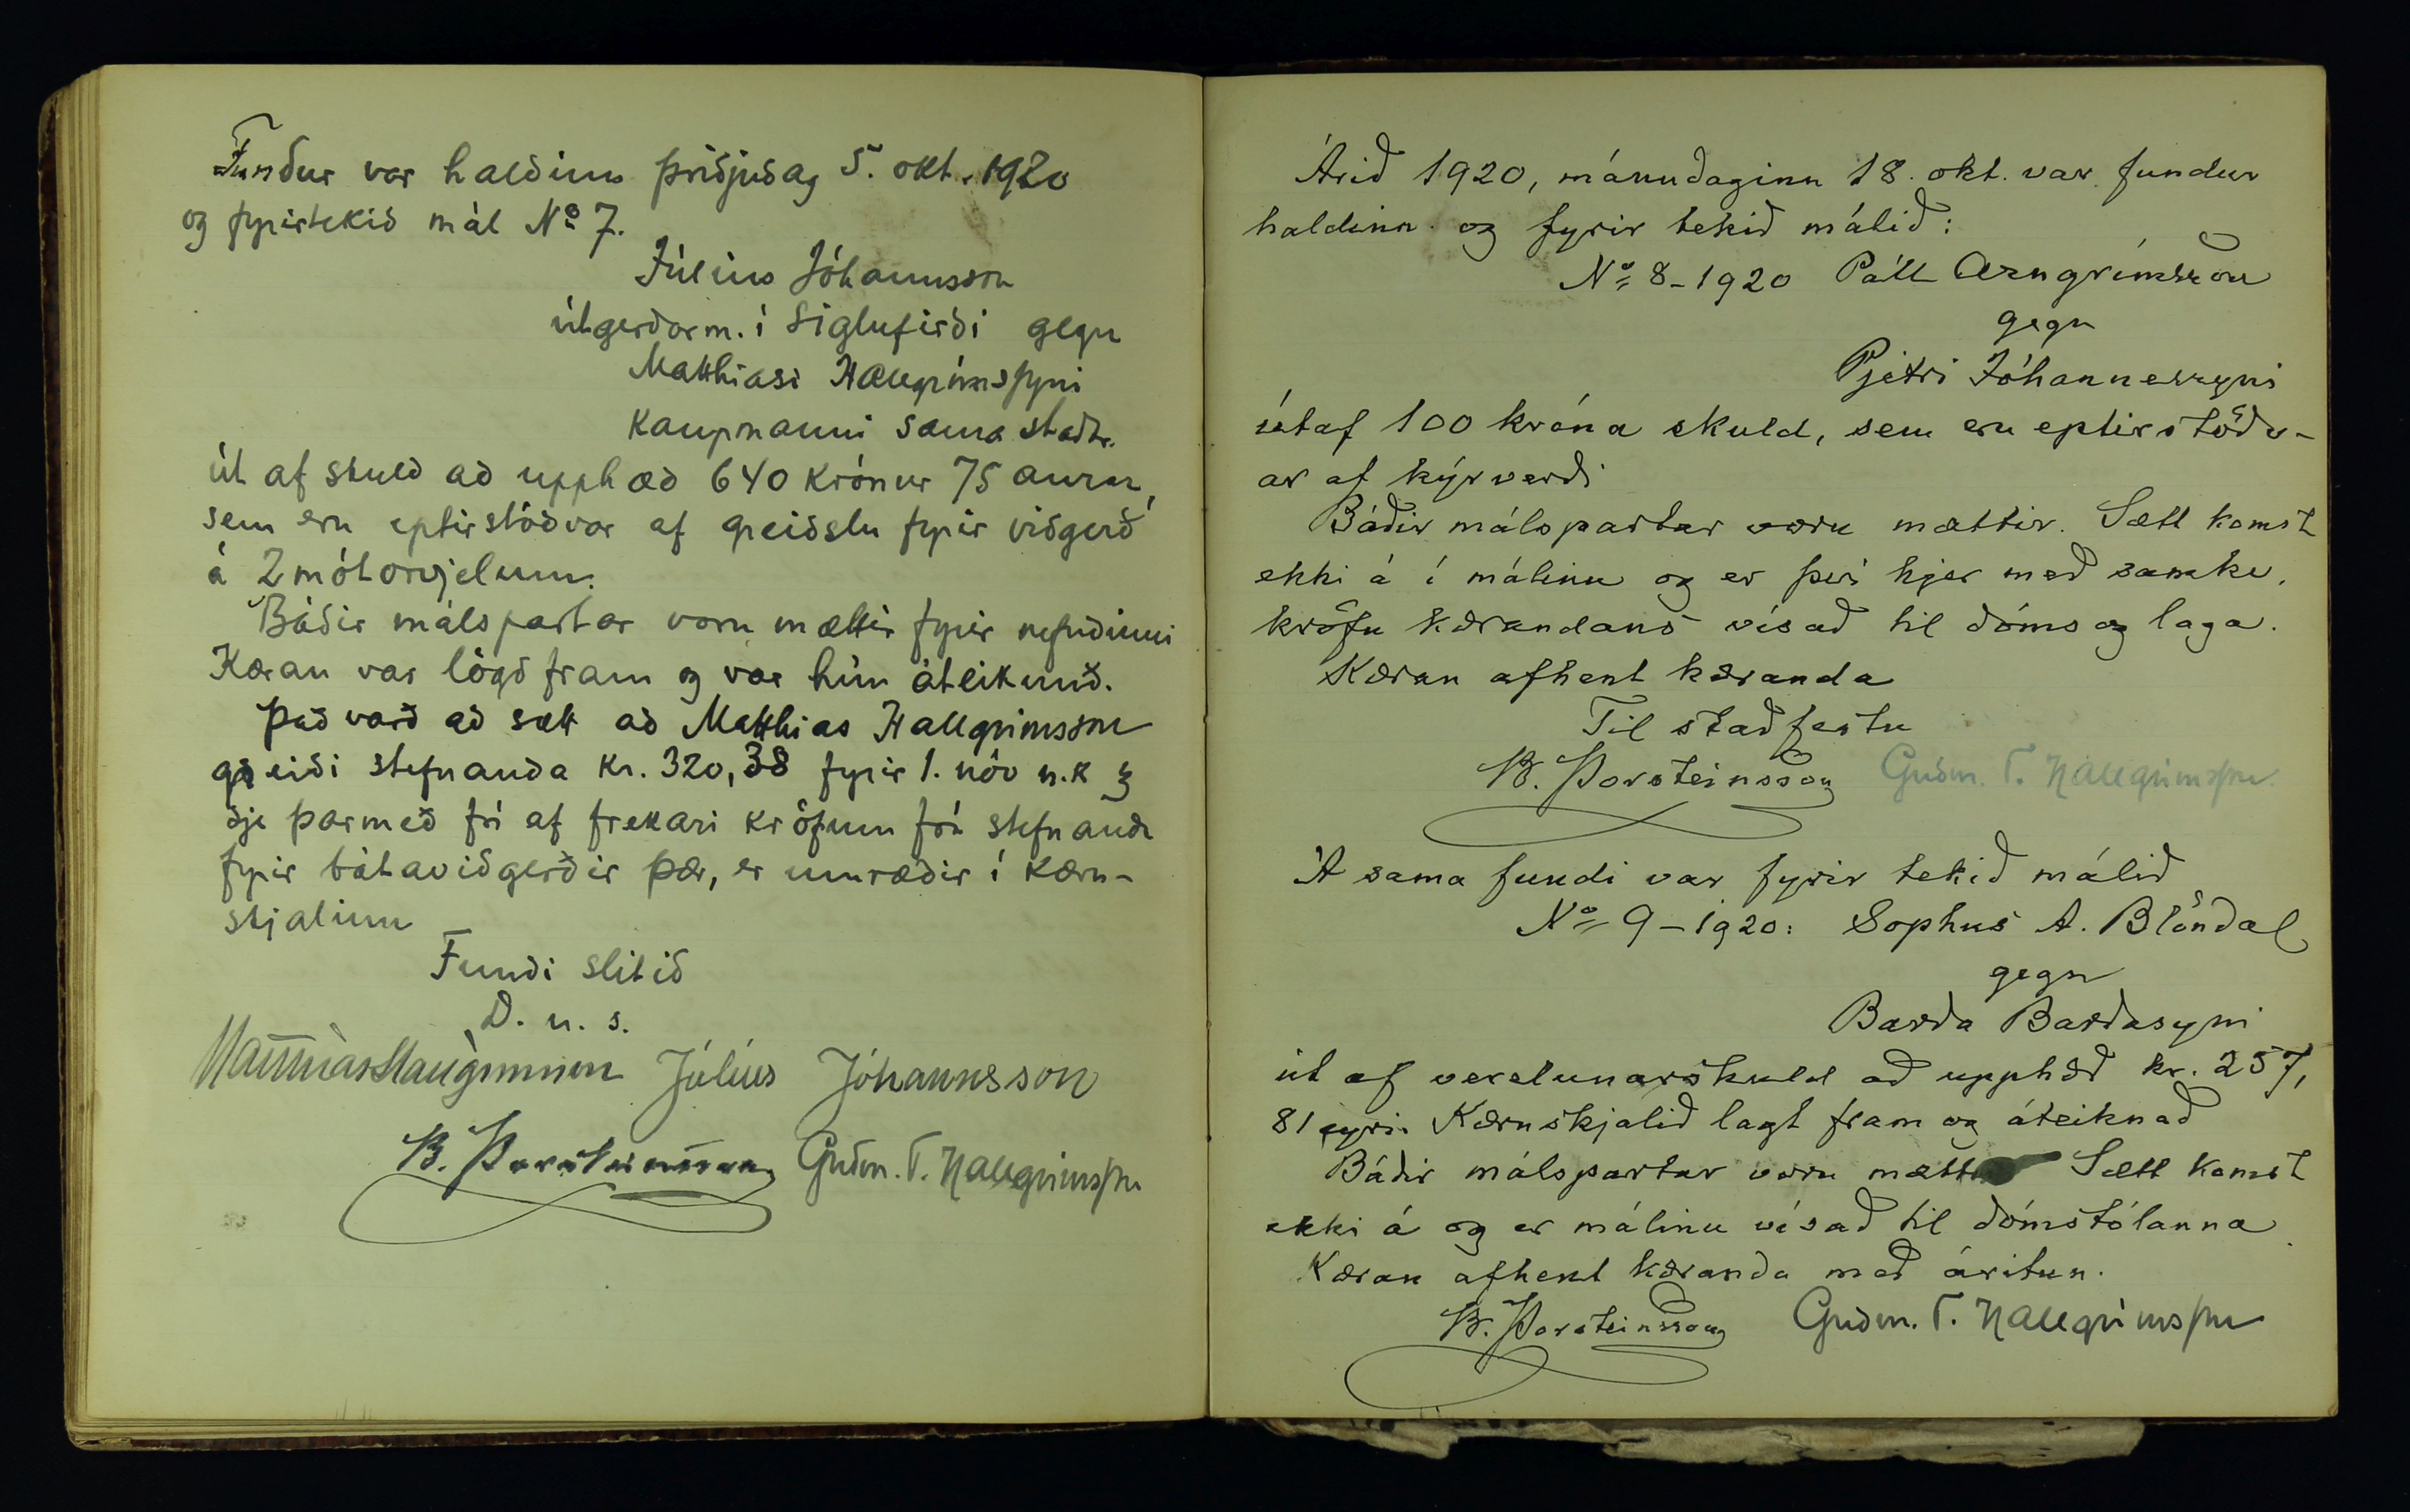 Fundur var haldinn þriðjudag 5. okt. 1920
og fyrirtekið mál No 7.
Július Jóhannsson
útgerðarm. í Siglufirði gegn
Matthiasi Hallgrímssyni
kaupmanni sama staðar.
út af skuld að upphæð 640 krónur 75 aurar,
sem eru eptirstöðvar af greiðslu fyrir viðgerð
á 2 mótorvjelum.
Báðir málspartar voru mættir fyrir nefndinni
Kæran var lögð fram og var hún áteiknuð.
Það varð að sætt að Matthias Hallgrimsson
greiði stefnanda kr. 320,38 fyrir 1. nóv n.k og
sje þarmeð frí af frekari kröfum frá stefnanda
fyrir bátaviðgerðir þær, er umræðir í kæru-
skjalinu
Fundi slitið
D. u. s.
Matthías Hallgrimsson Július Jóhannsson
B. Þorsteinsson Guðm. T. Hallgrimsson
Árið 1920, mánudaginn 18. okt. var fundur
haldinn og fyrir tekið málið:
No 8-1920 Páll Arngrímsson
gegn
Pjetri Jóhannessyni
útaf 100 króna skuld, sem eru eptirstöðv-
ar af kýrverði
Báðir málspartar voru mættir. Sætt komst
ekki á í málinu og er því hjer með
kröfu kærandans vísað til dóms og laga.
Kæran afhent kæranda
Til staðfestu
B. Þorsteinsson Guðm. T. Hallgrimsson
Á sama fundi var fyrir tekið málið
No 9-1920: Sophus A. Blöndal
gegn
Barða Barðasyni
út af verslunarskuld að upphæð kr. 257,
81 eyri. Kæruskjalið lagt fram og áteiknað
Báðir málspartar voru mættir Sætt komst
ekki á og er málinu vísað til dómstólanna
Kæran afhent kæranda með áritun.
B. Þorsteinsson Guðm. T. Hallgrimsson